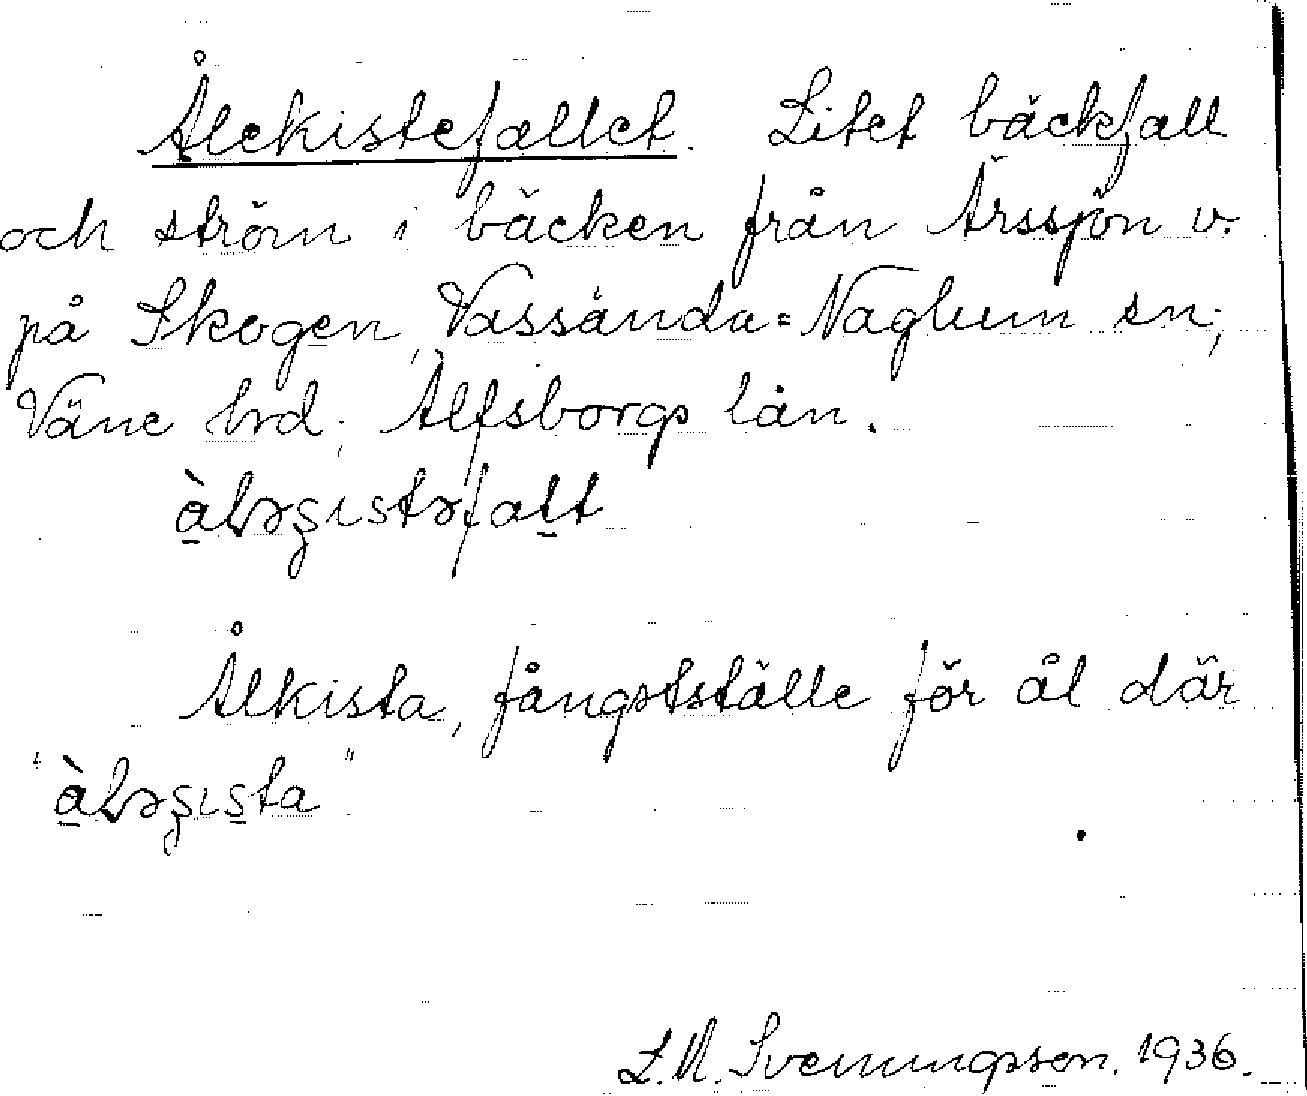 Ålekistefallet. Litet bäckfall
och ström i bäcken från Ärssjön v.
på Skogen, Vassända=Naglum sn,
Väne hrd, Älfsborgs län.
Ålkista, fångstställe för ål där
L.M. Svenungsson. 1936.